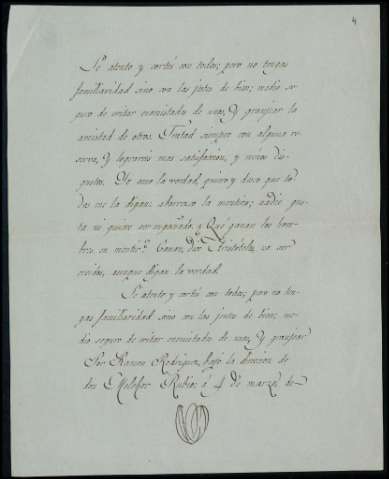 4
Se atento y cortés con todos; pero no tengas
familiaridad sino con los justos de bien; medio se-
guro de evitar enemistada de unos, y granjear la
amistad de otros. Tratad siempre con alguna re-
serva, y lograreis mas satisfaccion, y menos dis-
gustos. Yo amo la verdad, quiero y deseo que to-
dos me la digan: aborrezco la mentira; nadie gus-
ta ni quiere ser engañado. ¿Qué ganan los hom-
bres en mentir? Ganan, dice Aristóteles, no ser
creidos, aunque digan la verdad.
Se atento y cortés con todos; pero no ten-
gas familiaridad sino con los justos de bien; me-
dio seguro de evitar enemistada de unos, y granjear
Por Ramon Rodriguez, bajo la direccion de
don Melchor Rubio á 4 de marzo de